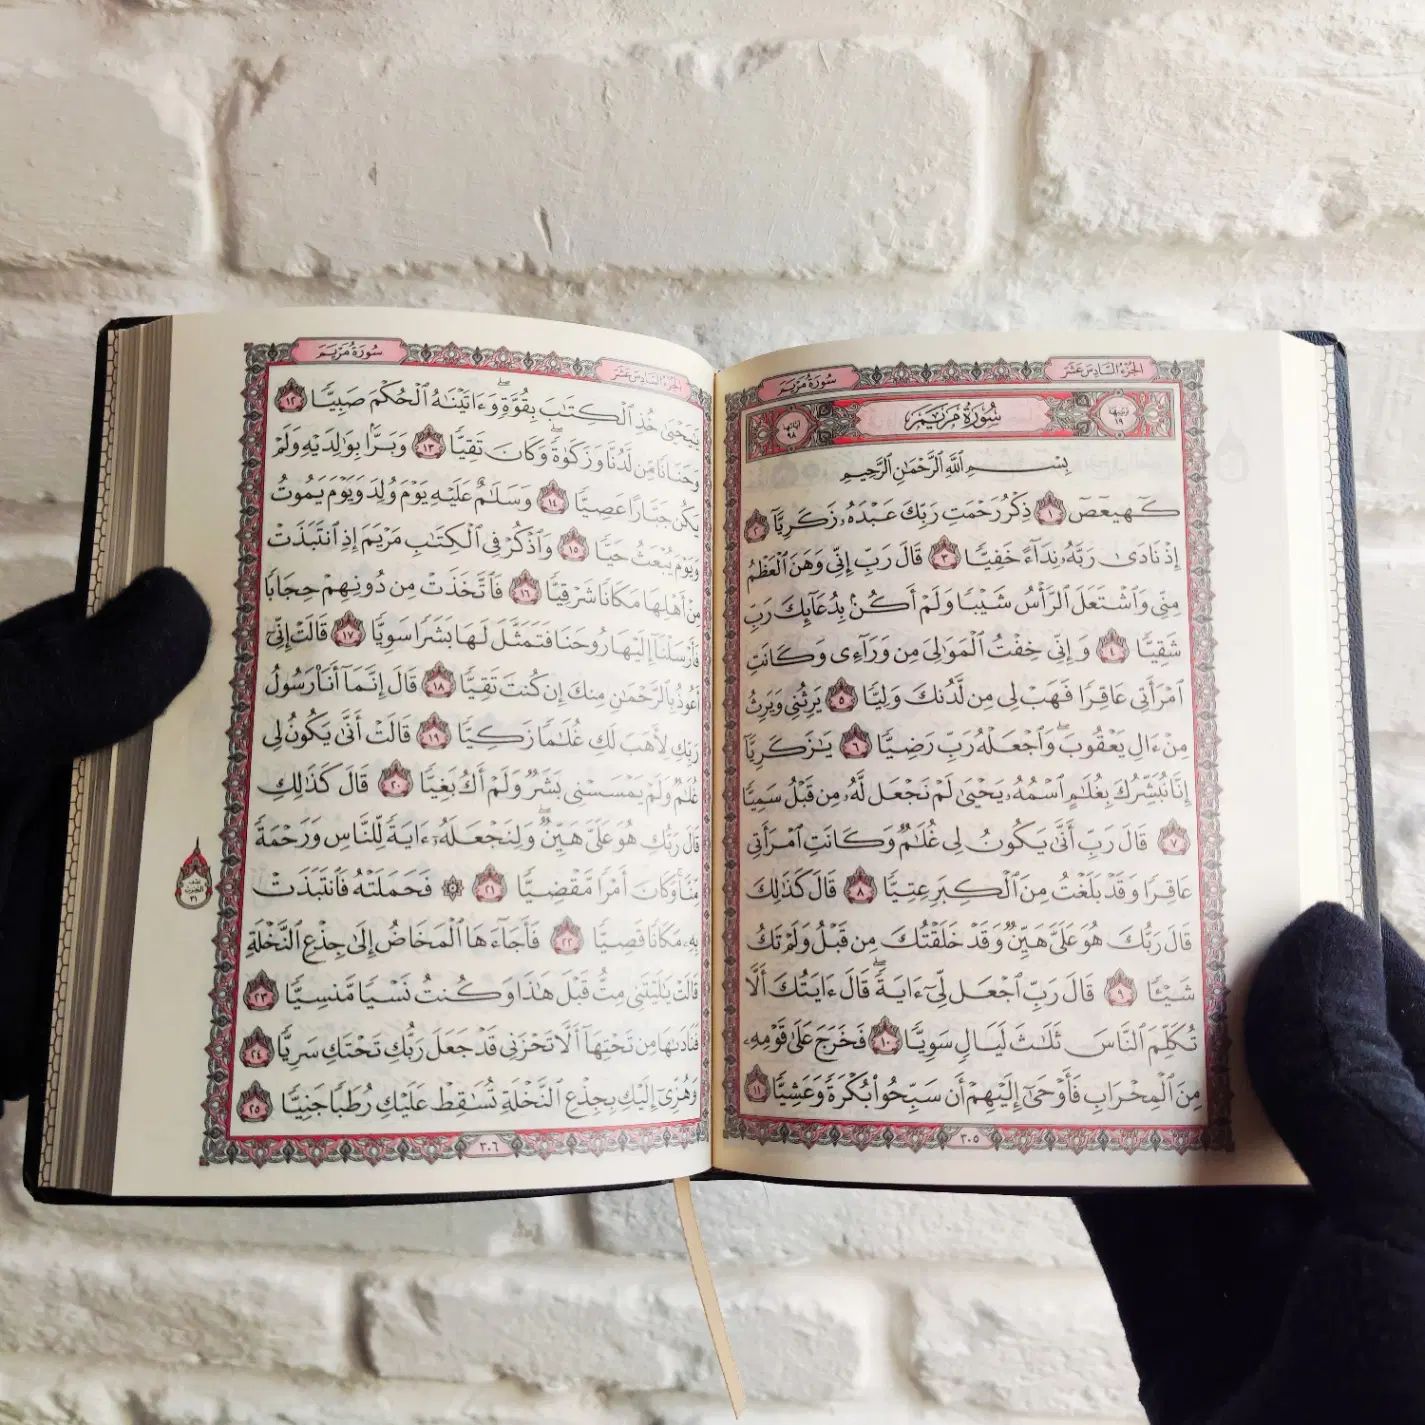 سُورَةُ مَرْيَمَ
الجُزْءُ السَّادِسَ عَشَرَ
ترتيبها ١٩
سُورَةُ مَرْيَمَ
آياتها ٩٨
بِسْمِ اللَّهِ الرَّحْمَٰنِ الرَّحِيمِ
كٓهيعٓصٓ ١ ذِكْرُ رَحْمَتِ رَبِّكَ عَبْدَهُۥ زَكَرِيَّآ ٢
إِذْ نَادَىٰ رَبَّهُۥ نِدَآءً خَفِيًّا ٣ قَالَ رَبِّ إِنِّى وَهَنَ ٱلْعَظْمُ
مِنِّى وَٱشْتَعَلَ ٱلرَّأْسُ شَيْبًا وَلَمْ أَكُنۢ بِدُعَآئِكَ رَبِّ
شَقِيًّا ٤ وَإِنِّى خِفْتُ ٱلْمَوَٰلِىَ مِن وَرَآءِى وَكَانَتِ
ٱمْرَأَتِى عَاقِرًا فَهَبْ لِى مِن لَّدُنكَ وَلِيًّا ٥ يَرِثُنِى وَيَرِثُ
مِنْ ءَالِ يَعْقُوبَ ۖ وَٱجْعَلْهُ رَبِّ رَضِيًّا ٦ يَٰزَكَرِيَّآ
إِنَّا نُبَشِّرُكَ بِغُلَٰمٍ ٱسْمُهُۥ يَحْيَىٰ لَمْ نَجْعَل لَّهُۥ مِن قَبْلُ سَمِيًّا
٧ قَالَ رَبِّ أَنَّىٰ يَكُونُ لِى غُلَٰمٌ وَكَانَتِ ٱمْرَأَتِى
عَاقِرًا وَقَدْ بَلَغْتُ مِنَ ٱلْكِبَرِ عِتِيًّا ٨ قَالَ كَذَٰلِكَ
قَالَ رَبُّكَ هُوَ عَلَىَّ هَيِّنٌ وَقَدْ خَلَقْتُكَ مِن قَبْلُ وَلَمْ تَكُ
شَيْـًٔا ٩ قَالَ رَبِّ ٱجْعَل لِّىٓ ءَايَةً ۚ قَالَ ءَايَتُكَ أَلَّا
تُكَلِّمَ ٱلنَّاسَ ثَلَٰثَ لَيَالٍ سَوِيًّا ١٠ فَخَرَجَ عَلَىٰ قَوْمِهِۦ
مِنَ ٱلْمِحْرَابِ فَأَوْحَىٰٓ إِلَيْهِمْ أَن سَبِّحُوا۟ بُكْرَةً وَعَشِيًّا ١١
٣٠٥
الجُزْءُ السَّادِسَ عَشَرَ
سُورَةُ مَرْيَمَ
يَٰيَحْيَىٰ خُذِ ٱلْكِتَٰبَ بِقُوَّةٍ ۖ وَءَاتَيْنَٰهُ ٱلْحُكْمَ صَبِيًّا ١٢
وَحَنَانًا مِّن لَّدُنَّا وَزَكَوٰةً ۖ وَكَانَ تَقِيًّا ١٣ وَبَرًّۢا بِوَٰلِدَيْهِ وَلَمْ
يَكُن جَبَّارًا عَصِيًّا ١٤ وَسَلَٰمٌ عَلَيْهِ يَوْمَ وُلِدَ وَيَوْمَ يَمُوتُ
وَيَوْمَ يُبْعَثُ حَيًّا ١٥ وَٱذْكُرْ فِى ٱلْكِتَٰبِ مَرْيَمَ إِذِ ٱنتَبَذَتْ
مِنْ أَهْلِهَا مَكَانًا شَرْقِيًّا ١٦ فَٱتَّخَذَتْ مِن دُونِهِمْ حِجَابًا
فَأَرْسَلْنَآ إِلَيْهَا رُوحَنَا فَتَمَثَّلَ لَهَا بَشَرًا سَوِيًّا ١٧ قَالَتْ إِنِّىٓ
أَعُوذُ بِٱلرَّحْمَٰنِ مِنكَ إِن كُنتَ تَقِيًّا ١٨ قَالَ إِنَّمَآ أَنَا۠ رَسُولُ
رَبِّكِ لِأَهَبَ لَكِ غُلَٰمًا زَكِيًّا ١٩ قَالَتْ أَنَّىٰ يَكُونُ لِى
غُلَٰمٌ وَلَمْ يَمْسَسْنِى بَشَرٌ وَلَمْ أَكُ بَغِيًّا ٢٠ قَالَ كَذَٰلِكِ
قَالَ رَبُّكِ هُوَ عَلَىَّ هَيِّنٌ ۖ وَلِنَجْعَلَهُۥٓ ءَايَةً لِّلنَّاسِ وَرَحْمَةً
مِّنَّا ۚ وَكَانَ أَمْرًا مَّقْضِيًّا ٢١ ۞ فَحَمَلَتْهُ فَٱنتَبَذَتْ
بِهِۦ مَكَانًا قَصِيًّا ٢٢ فَأَجَآءَهَا ٱلْمَخَاضُ إِلَىٰ جِذْعِ ٱلنَّخْلَةِ
قَالَتْ يَٰلَيْتَنِى مِتُّ قَبْلَ هَٰذَا وَكُنتُ نَسْيًا مَّنسِيًّا ٢٣
فَنَادَىٰهَا مِن تَحْتِهَآ أَلَّا تَحْزَنِى قَدْ جَعَلَ رَبُّكِ تَحْتَكِ سَرِيًّا ٢٤
وَهُزِّىٓ إِلَيْكِ بِجِذْعِ ٱلنَّخْلَةِ تُسَٰقِطْ عَلَيْكِ رُطَبًا جَنِيًّا ٢٥
نصف
الحزب
٣١
٣٠٦